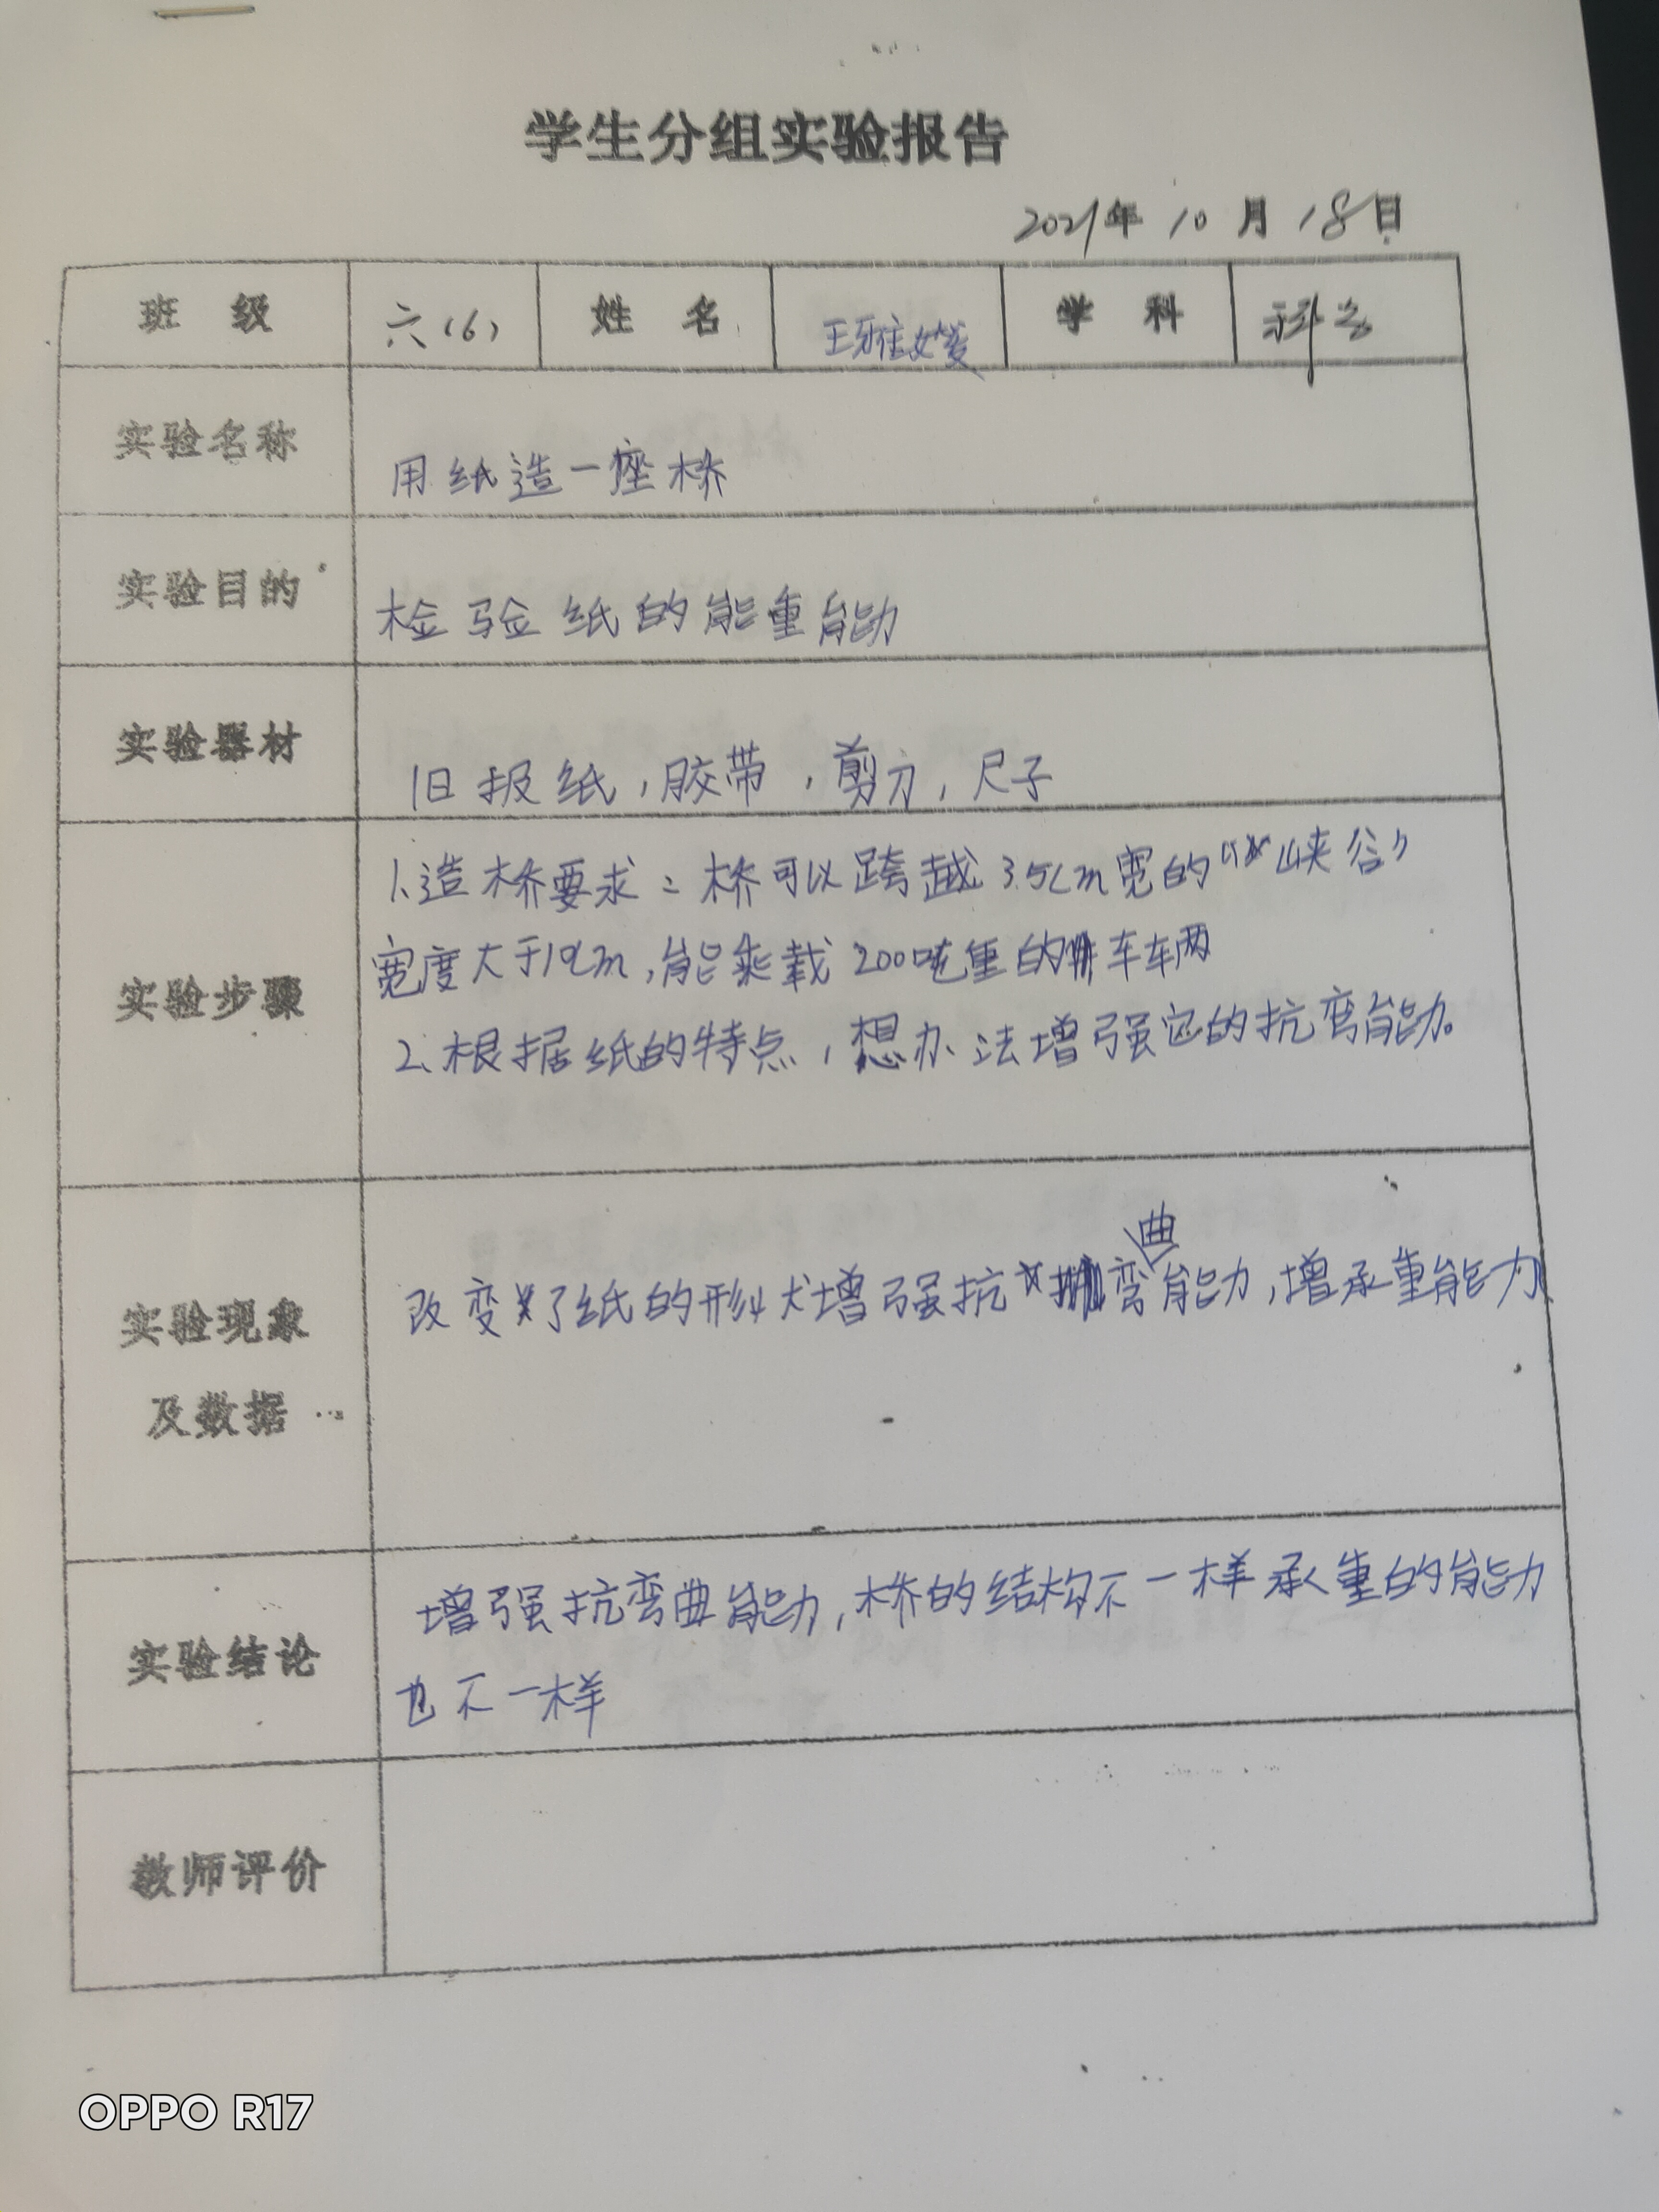 学生分组实验报告
2021年 10 月 18日
班 级 六(6) 姓 名 王雅 学 科 科
实验名称 用纸造一座桥
实验目的 检验纸的能重能动
实验器材 旧报纸,胶带,剪刀,尺子
1.造桥要求:桥可以跨越35cm宽的“峡谷”
宽度大于10cm,能乘载200吨重的车车两
实验步骤
2.根据纸的特点,想办法增强它的抗弯能动。
改变了纸的形状增强抗弯曲能力,增承重能力
实验现象
及数据
增强抗弯曲能动,桥的结构不一样承重的能动
实验结论
也不一样
教师评价
OPPO R17